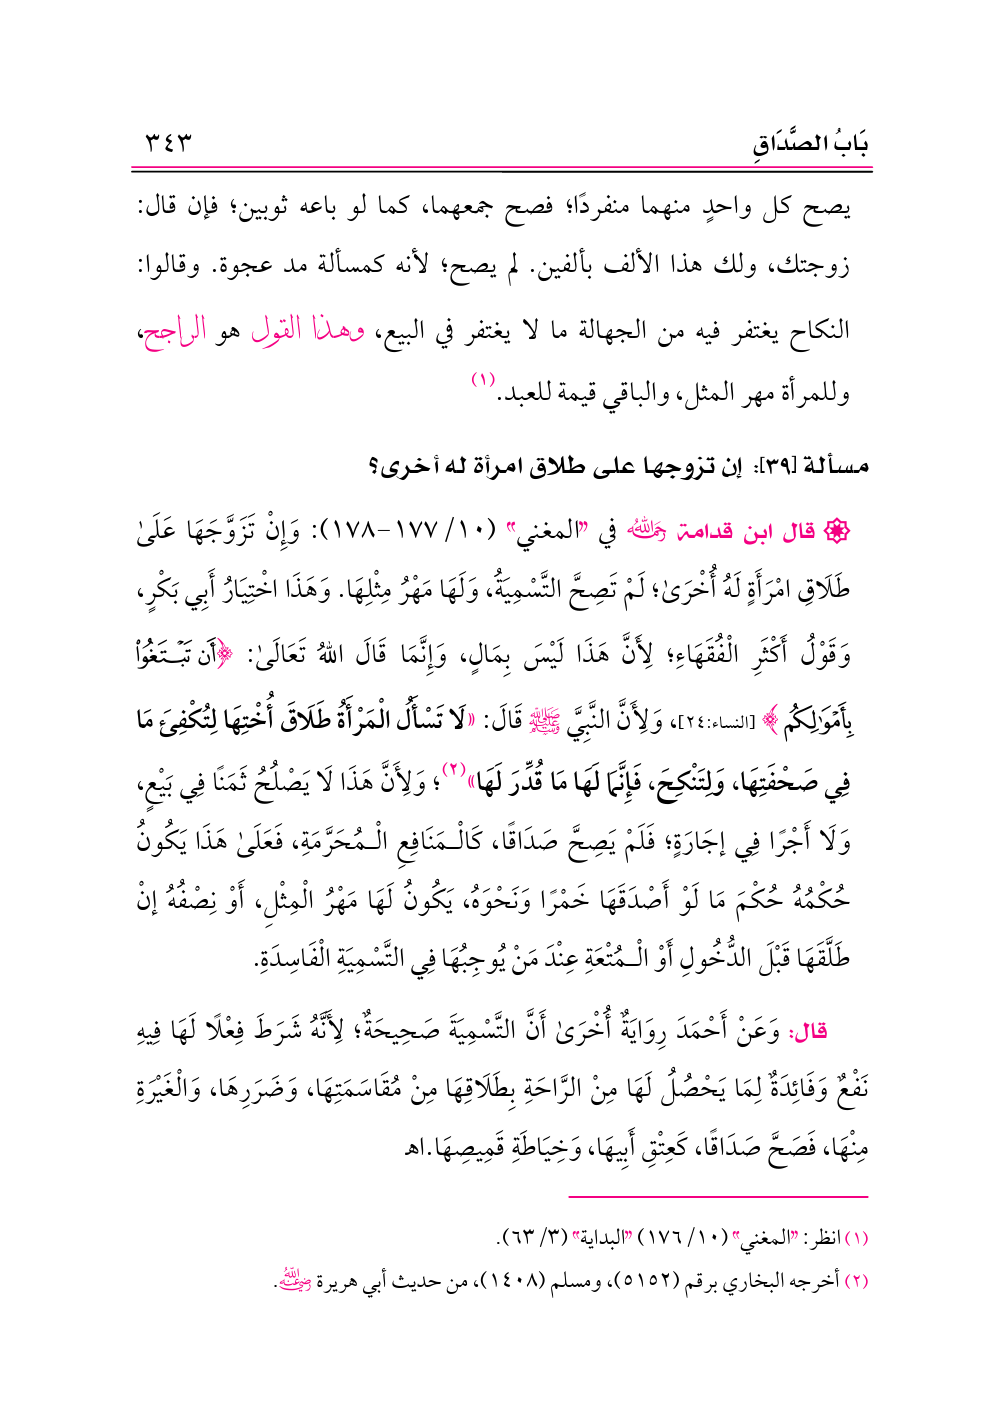 بَابُ الصَّدَاقِ ٣٤٣
يصح كل واحدٍ منهما منفردًا؛ فصح جمعهما، كما لو باعه ثوبين؛ فإن قال:
زوجتك، ولك هذا الألف بألفين. لم يصح؛ لأنه كمسألة مد عجوة. وقالوا:
النكاح يغتفر فيه من الجهالة ما لا يغتفر في البيع، وهذا القول هو الراجح،
وللمرأة مهر المثل، والباقي قيمة للعبد.(١)
مسألة [٣٩]: إن تزوجها على طلاق امرأة له أخرى؟
۞ قال ابن قدامة رحمه الله في "المغني" (١٠/ ١٧٧-١٧٨): وَإِنْ تَزَوَّجَهَا عَلَىٰ
طَلَاقِ امْرَأَةٍ لَهُ أُخْرَىٰ؛ لَمْ تَصِحَّ التَّسْمِيَةُ، وَلَهَا مَهْرُ مِثْلِهَا. وَهَذَا اخْتِيَارُ أَبِي بَكْرٍ،
وَقَوْلُ أَكْثَرِ الْفُقَهَاءِ؛ لِأَنَّ هَذَا لَيْسَ بِمَالٍ، وَإِنَّمَا قَالَ اللهُ تَعَالَىٰ: ﴿أَن تَبْتَغُوا۟
بِأَمْوَٰلِكُم﴾ [النساء:٢٤]، وَلِأَنَّ النَّبِيَّ ﷺ قَالَ: «لَا تَسْأَلُ الْمَرْأَةُ طَلَاقَ أُخْتِهَا لِتُكْفِئَ مَا
فِي صَحْفَتِهَا، وَلِتَنْكِحَ، فَإِنَّمَا لَهَا مَا قُدِّرَ لَهَا»(٢)؛ وَلِأَنَّ هَذَا لَا يَصْلُحُ ثَمَنًا فِي بَيْعٍ،
وَلَا أَجْرًا فِي إجَارَةٍ؛ فَلَمْ يَصِحَّ صَدَاقًا، كَالْـمَنَافِعِ الْـمُحَرَّمَةِ، فَعَلَىٰ هَذَا يَكُونُ
حُكْمُهُ حُكْمَ مَا لَوْ أَصْدَقَهَا خَمْرًا وَنَحْوَهُ، يَكُونُ لَهَا مَهْرُ الْمِثْلِ، أَوْ نِصْفُهُ إنْ
طَلَّقَهَا قَبْلَ الدُّخُولِ أَوْ الْـمُتْعَةِ عِنْدَ مَنْ يُوجِبُهَا فِي التَّسْمِيَةِ الْفَاسِدَةِ.
قال: وَعَنْ أَحْمَدَ رِوَايَةٌ أُخْرَىٰ أَنَّ التَّسْمِيَةَ صَحِيحَةٌ؛ لِأَنَّهُ شَرَطَ فِعْلًا لَهَا فِيهِ
نَفْعٌ وَفَائِدَةٌ لِمَا يَحْصُلُ لَهَا مِنْ الرَّاحَةِ بِطَلَاقِهَا مِنْ مُقَاسَمَتِهَا، وَضَرَرِهَا، وَالْغَيْرَةِ
مِنْهَا، فَصَحَّ صَدَاقًا، كَعِتْقِ أَبِيهَا، وَخِيَاطَةِ قَمِيصِهَا.اهـ
(١) انظر: "المغني" (١٠/ ١٧٦) "البداية" (٣/ ٦٣).
(٢) أخرجه البخاري برقم (٥١٥٢)، ومسلم (١٤٠٨)، من حديث أبي هريرة رضي الله عنه.